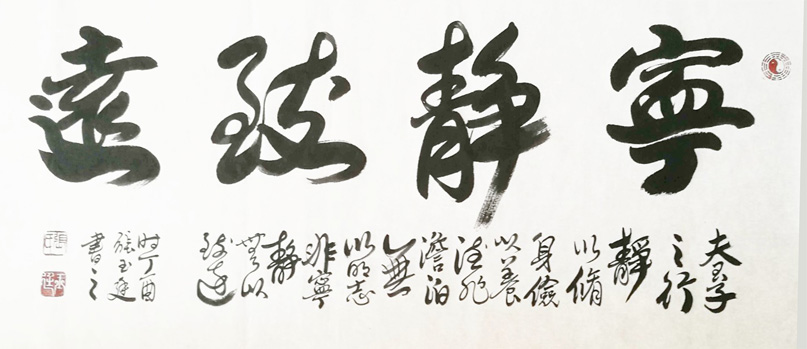 寧靜致遠
夫君子
之行
靜
以脩
身儉
以養
德非
澹泊
無
以明志
非寧
靜
無以
致遠
时丁酉
張玉
書之